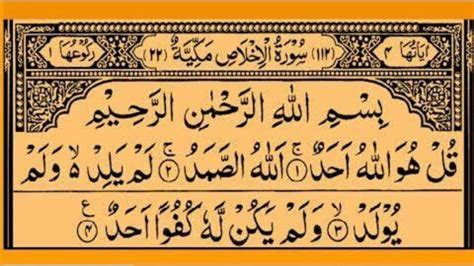 اٰيَاتُهَا ٤ (١١٢) سُوْرَةُ الْاِخْلَاصِ مَكِّيَّةٌ (٢٢) رُكُوْعُهَا ١
بِسْمِ اللهِ الرَّحْمٰنِ الرَّحِيْمِ
قُلْ هُوَ اللهُ اَحَدٌ ۚ ١ اَللهُ الصَّمَدُ ۚ ٢ لَمْ يَلِدْ ۙ وَلَمْ
يُوْلَدْ ۙ ٣ وَلَمْ يَكُنْ لَّهٗ كُفُوًا اَحَدٌ ٤ ع